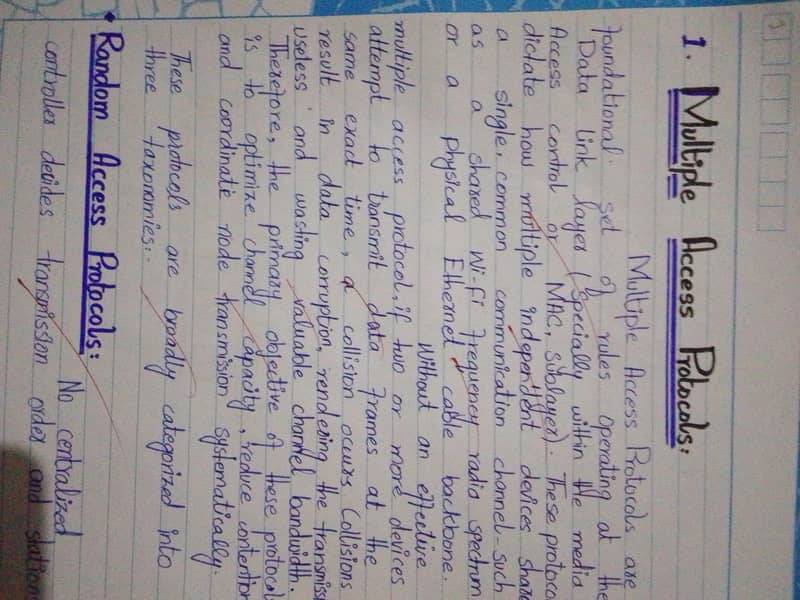 1. Multiple Access Protocols:
Multiple Access Protocols are
foundational set of rules operating at the
Data link layer (specially within the media
Access control or MAC, Sublayer). These protoco
dictate how multiple independent devices share
a single, common communication channel-such
as a shared Wi-Fi frequency radio spectrum
or a physical Ethernet cable backbone.
Without an effective
multiple access protocol, if two or more devices
attempt to transmit data frames at the
same exact time, a collision occurs. Collisions
result in data corruption, rendering the transmiss
useless and wasting valuable channel bandwidth.
Therefore, the primary objective of these protocol
is to optimize channel capacity, reduce contention
and coordinate node transmission systematically.
These protocols are broadly categorized into
three taxonomies:-
• Random Access Protocols:
No centralized
controller decides transmission order and station